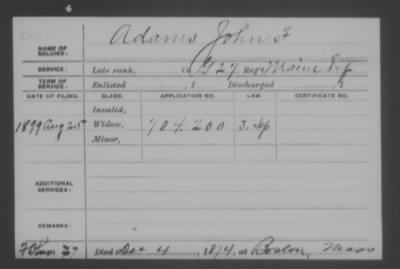 Adams, John F
NAME OF SOLDIER:
SERVICE: Late rank, Co. G 27 Reg't Maine Inf
TERM OF SERVICE: Enlisted , 1 Discharged , 1
DATE OF FILING. CLASS. APPLICATION NO. LAW. CERTIFICATE NO.
Invalid,
1899 Aug 25 Widow, 704.200
Minor,
ADDITIONAL SERVICES:
REMARKS:
Died Dec 4, 1874, at Boston, Mass